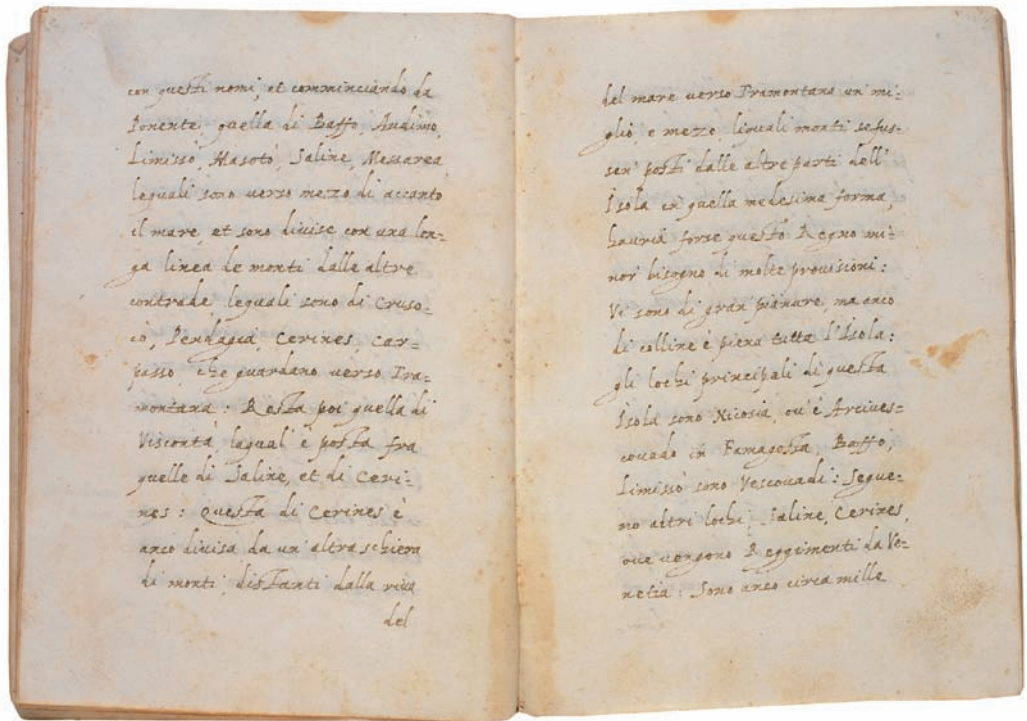 con questi nomi, et comminciando da
Ponente, quella di Baffo, Audimo,
Limissò, Masotò, Saline, Messarea,
lequali sono verso mezo di accanto
il mare, et sono divise con una lon=
ga linea de monti dalle altre
contrade, lequali sono di Cruso=
cò, Pendagia, Cerines, Car=
passo, che guardano verso Tra=
montana: Resta poi quella di
Viscontà, laqual' è posta fra
quelle di Saline, et di Ceri=
nes: Questa di Cerines è
anco divisa da un' altra schiera
di monti, distanti dalla riva
del
del mare verso Tramontana un mi=
gliò, e mezo, liquali monti se fus=
sen posti dalle altre parti dell'
Isola in quella medesima forma,
hauria forse questo Regno mi=
nor bisogno di molte provisioni:
Vi sono di gran pianure, ma anco
di colline è piena tutta l'Isola:
gli lochi principali di questa
Isola sono Nicosia, ov' è Arcives=
covado in Famagosta, Baffo,
Limissò sono Vescovadi: Segue=
no altri lochi, Saline, Cerines,
ove vengono Reggimenti da Ve=
netia: Sono anco circa mille